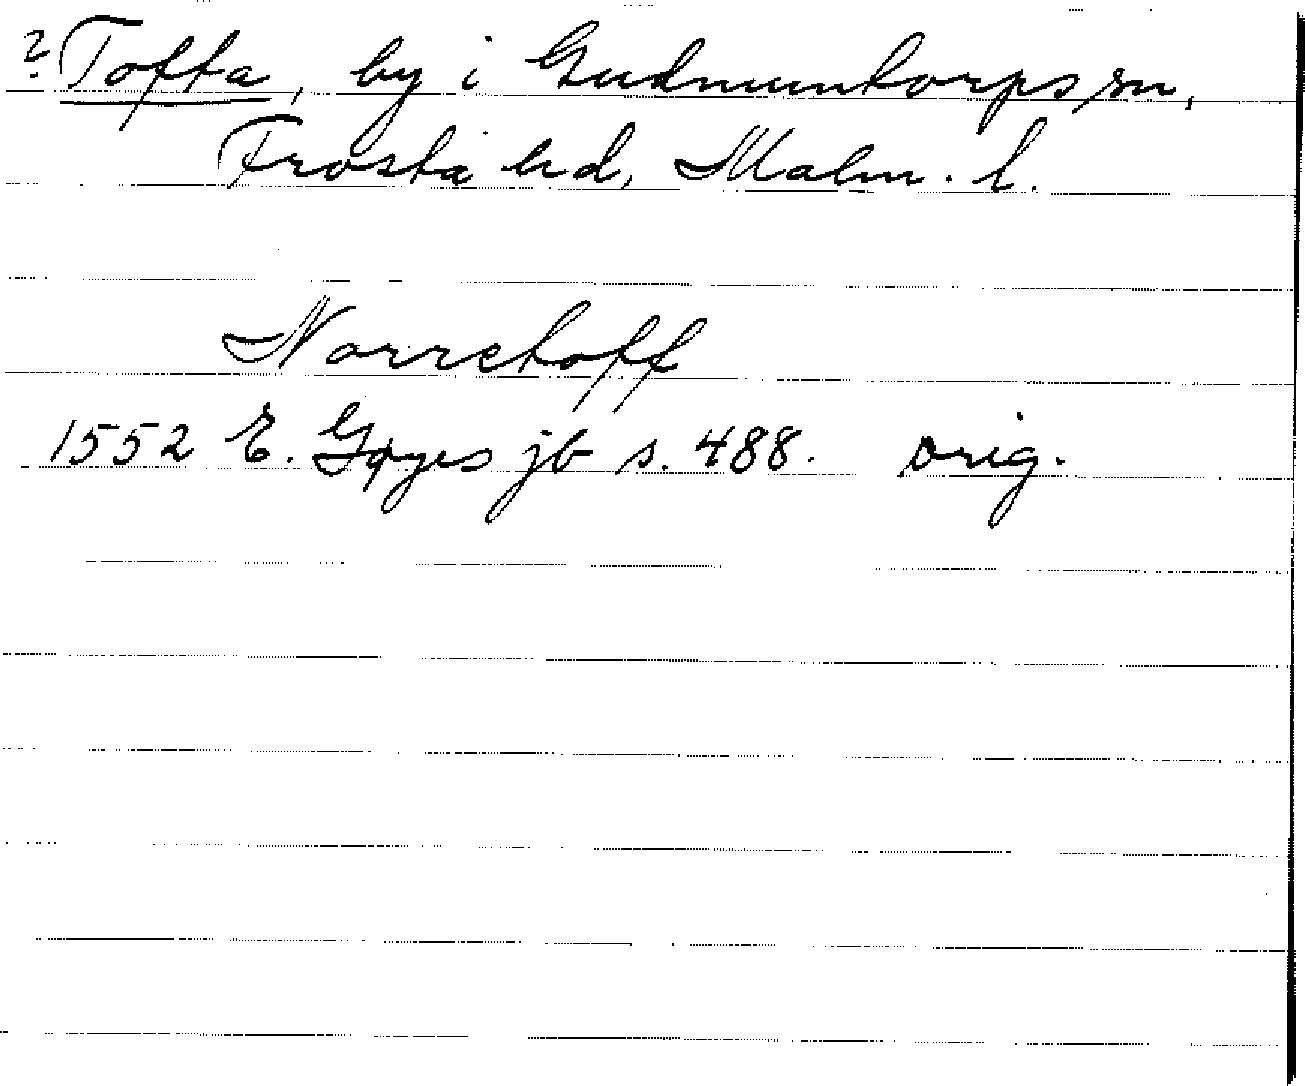 ? Tofta, by i Gudmuntorps sn,
Frosta hd, Malm. l.
Norretoff
1552 E. Gøyes jb s. 488. orig.